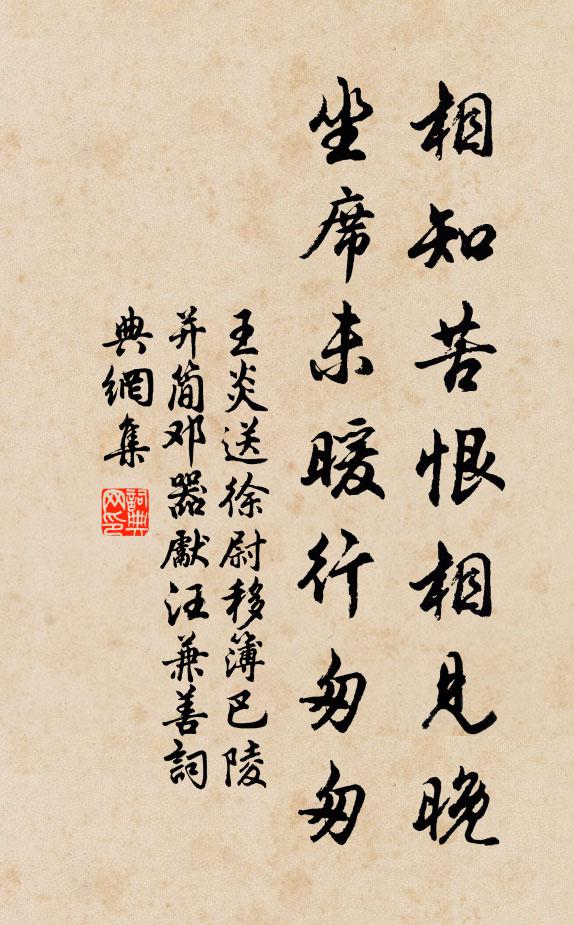 相知苦恨相見晚
坐席未暖行匆匆
王炎送徐尉移簿巴陵
并简邓器獻汪兼善詞
典網集
詞典
网印